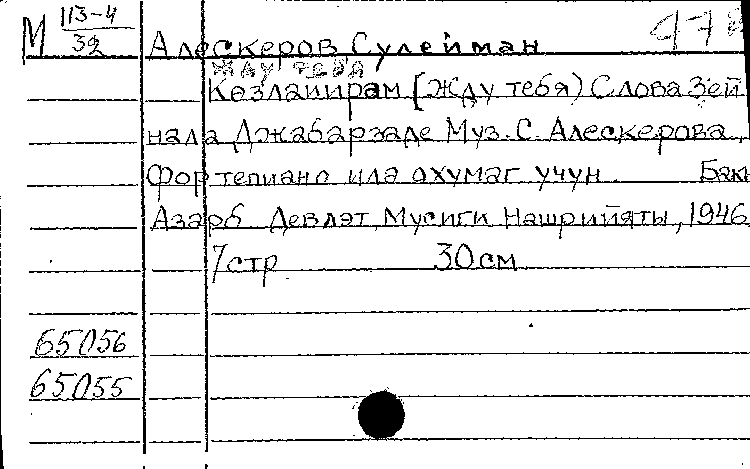 М 113-4
32
Алескеров Сулейман
Жду тебя
Көзлаиирам (Жду тебя) Слова Зей
нала Джабарзаде Муз. С. Алескерова,
Фортепиано илә охумаг учун. Бак
Азәрб Девләт Мусиги Нашрийяты, 1946
7 стр 30 см
65056
65055